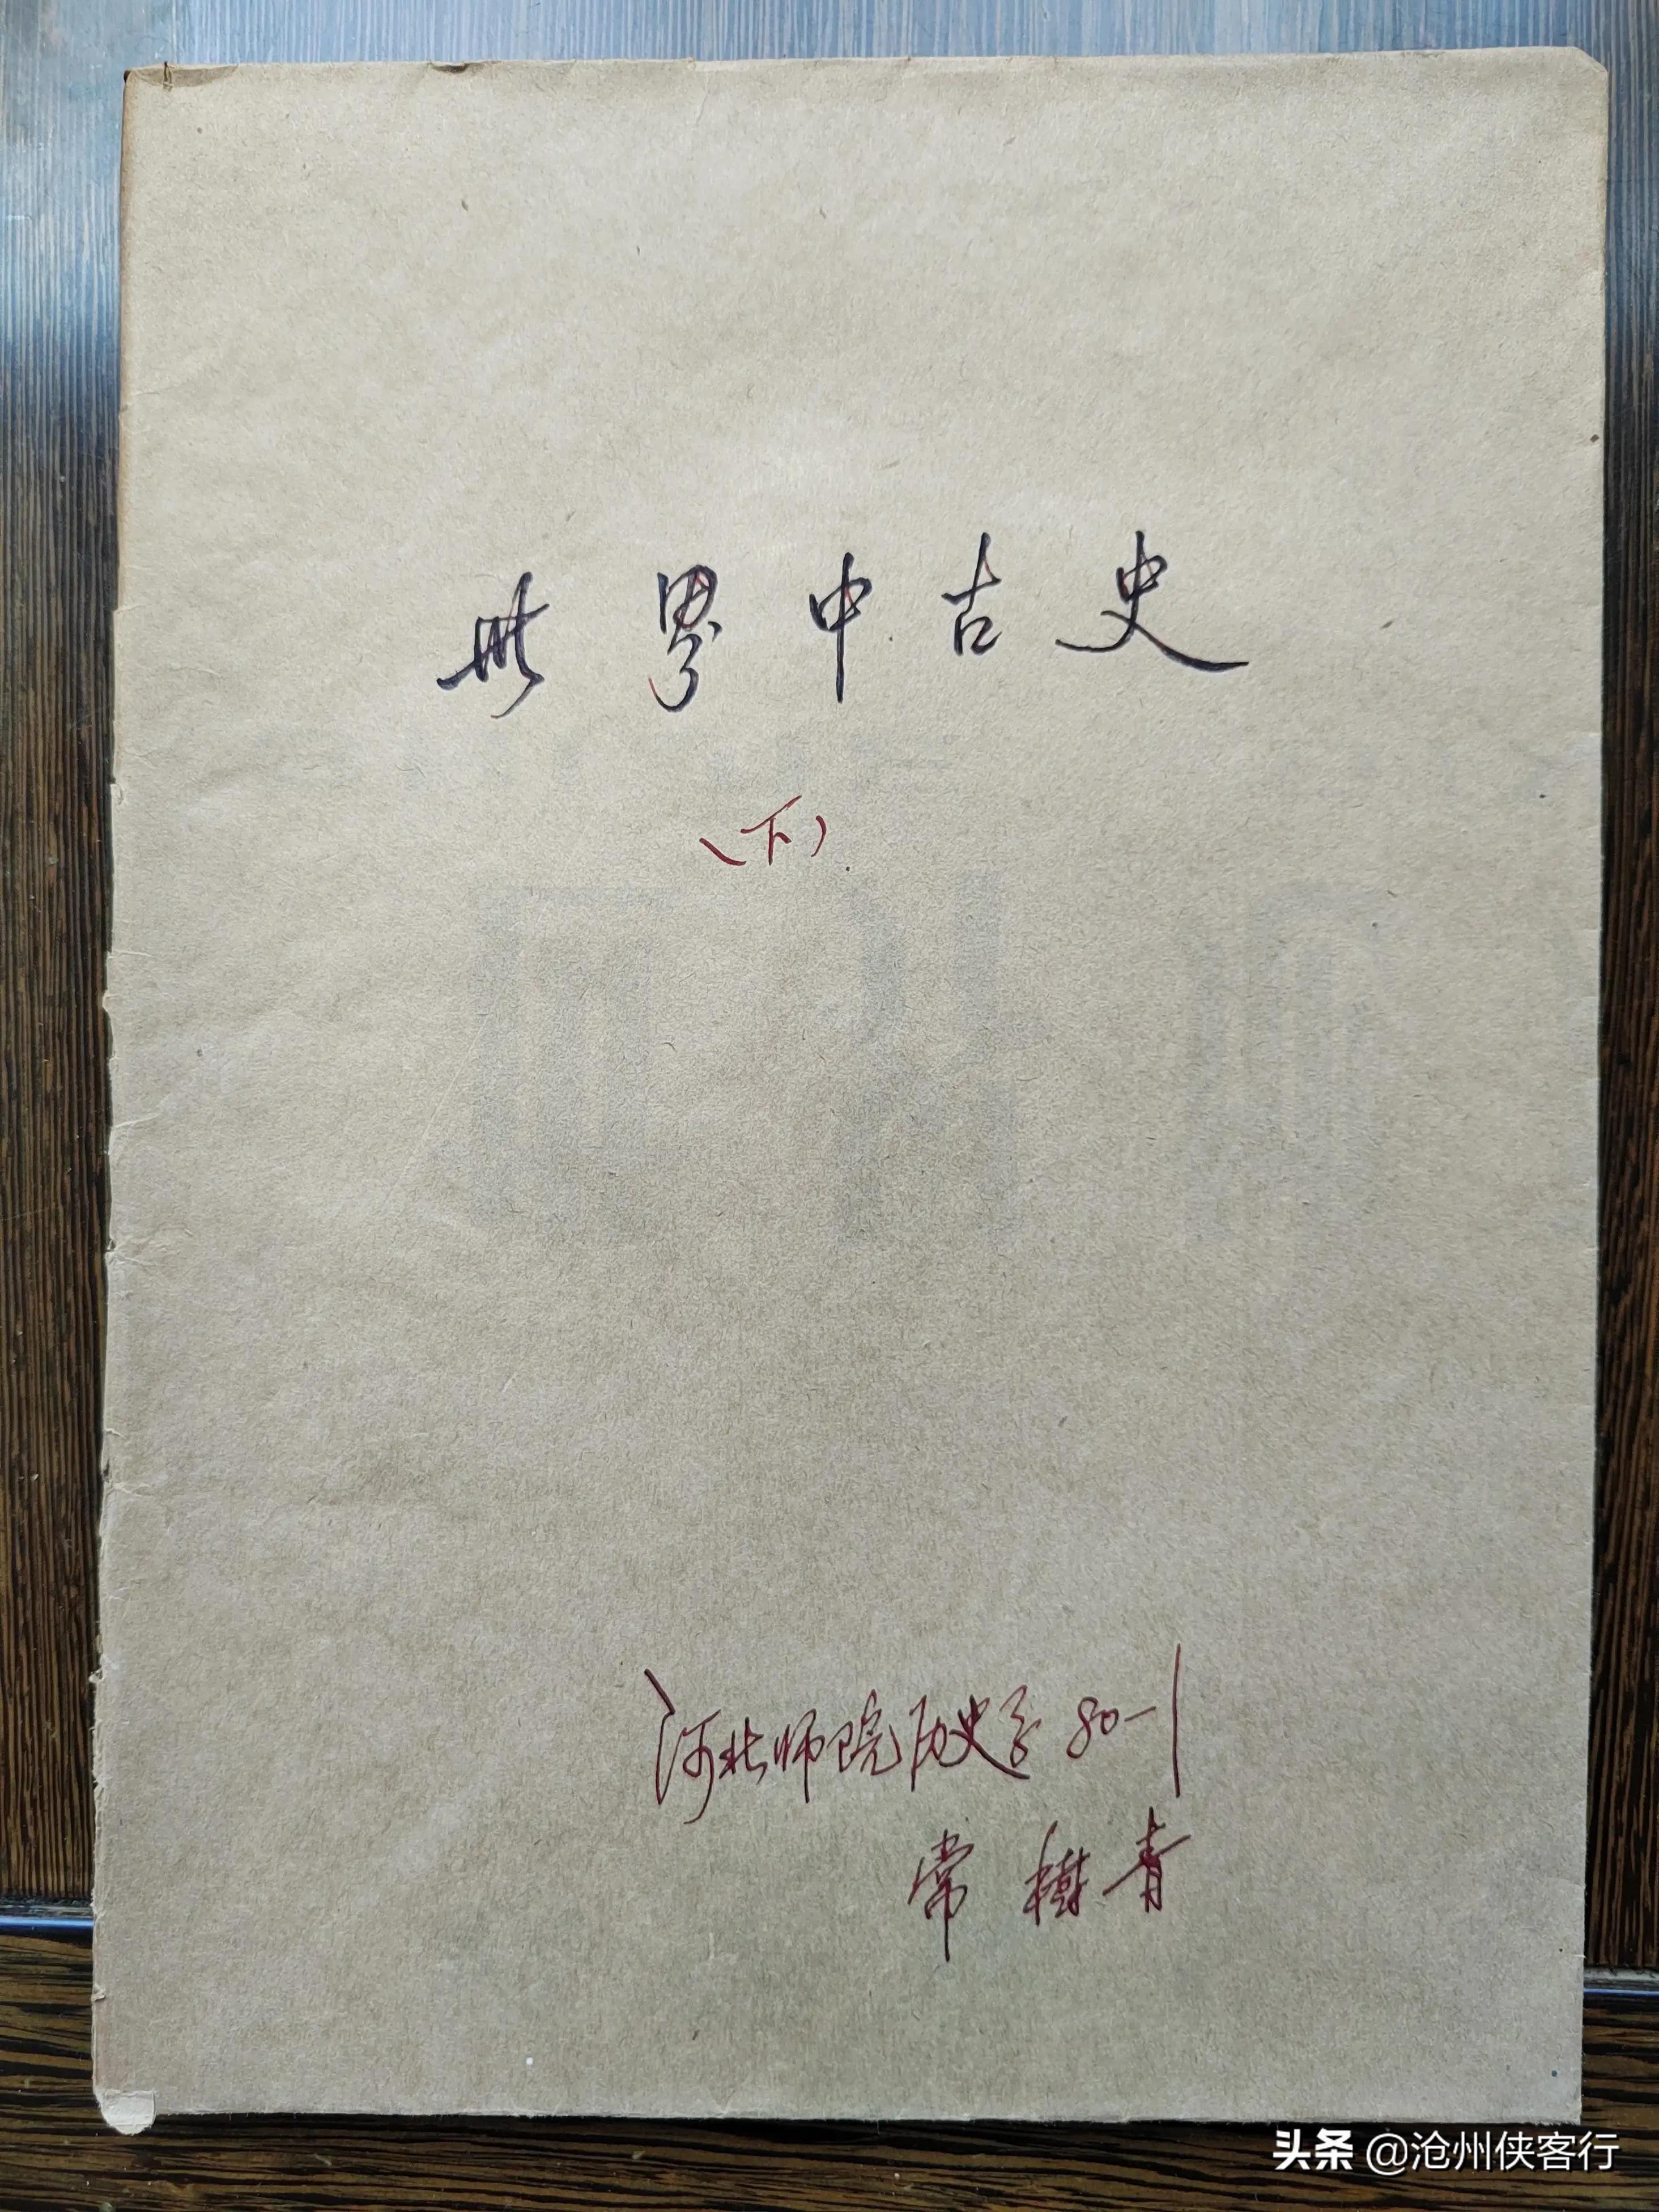 世界中古史
(下)
河北师院历史系80-1
常樹青
头条 @沧州侠客行